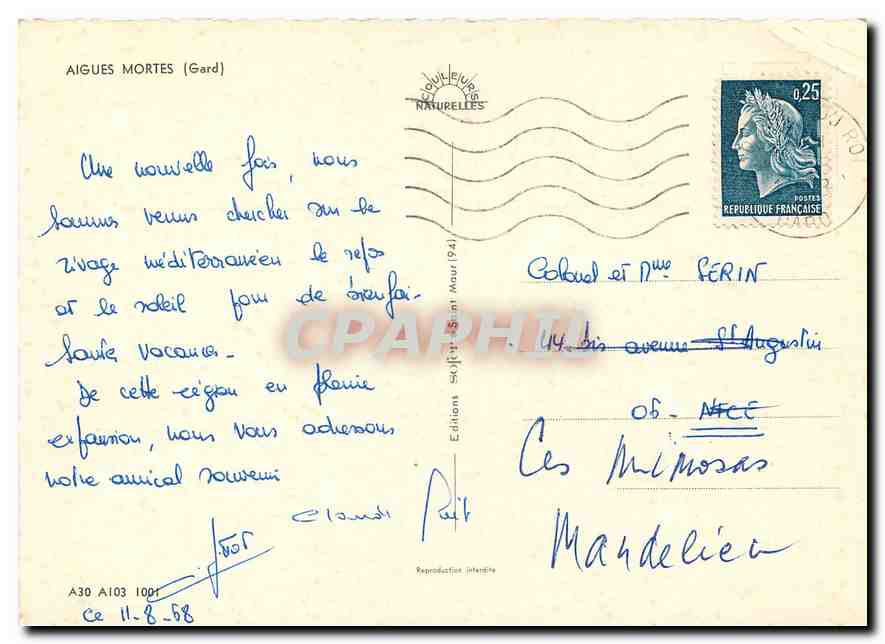 AIGUES MORTES (Gard)
COULEURS
NATURELLES
0,25
POSTES
REPUBLIQUE FRANÇAISE
DU ROI
GARD
Une nouvelle fois, nous
sommes venus chercher sur le
rivage méditerranéen le repos
et le soleil pour de bienfai-
santes vacances-
De cette région en pleine
expansion, nous vous adressons
notre amical souvenir
Claude
A30 A103 1001
ce 11-8-68
Editions SOFER - Saint Maur (94)
Reproduction interdite
Colonel et Mme SERIN
44 bis avenue St Augustin
06- NICE
Les Mimosas
Mandelieu
CPAPHIL